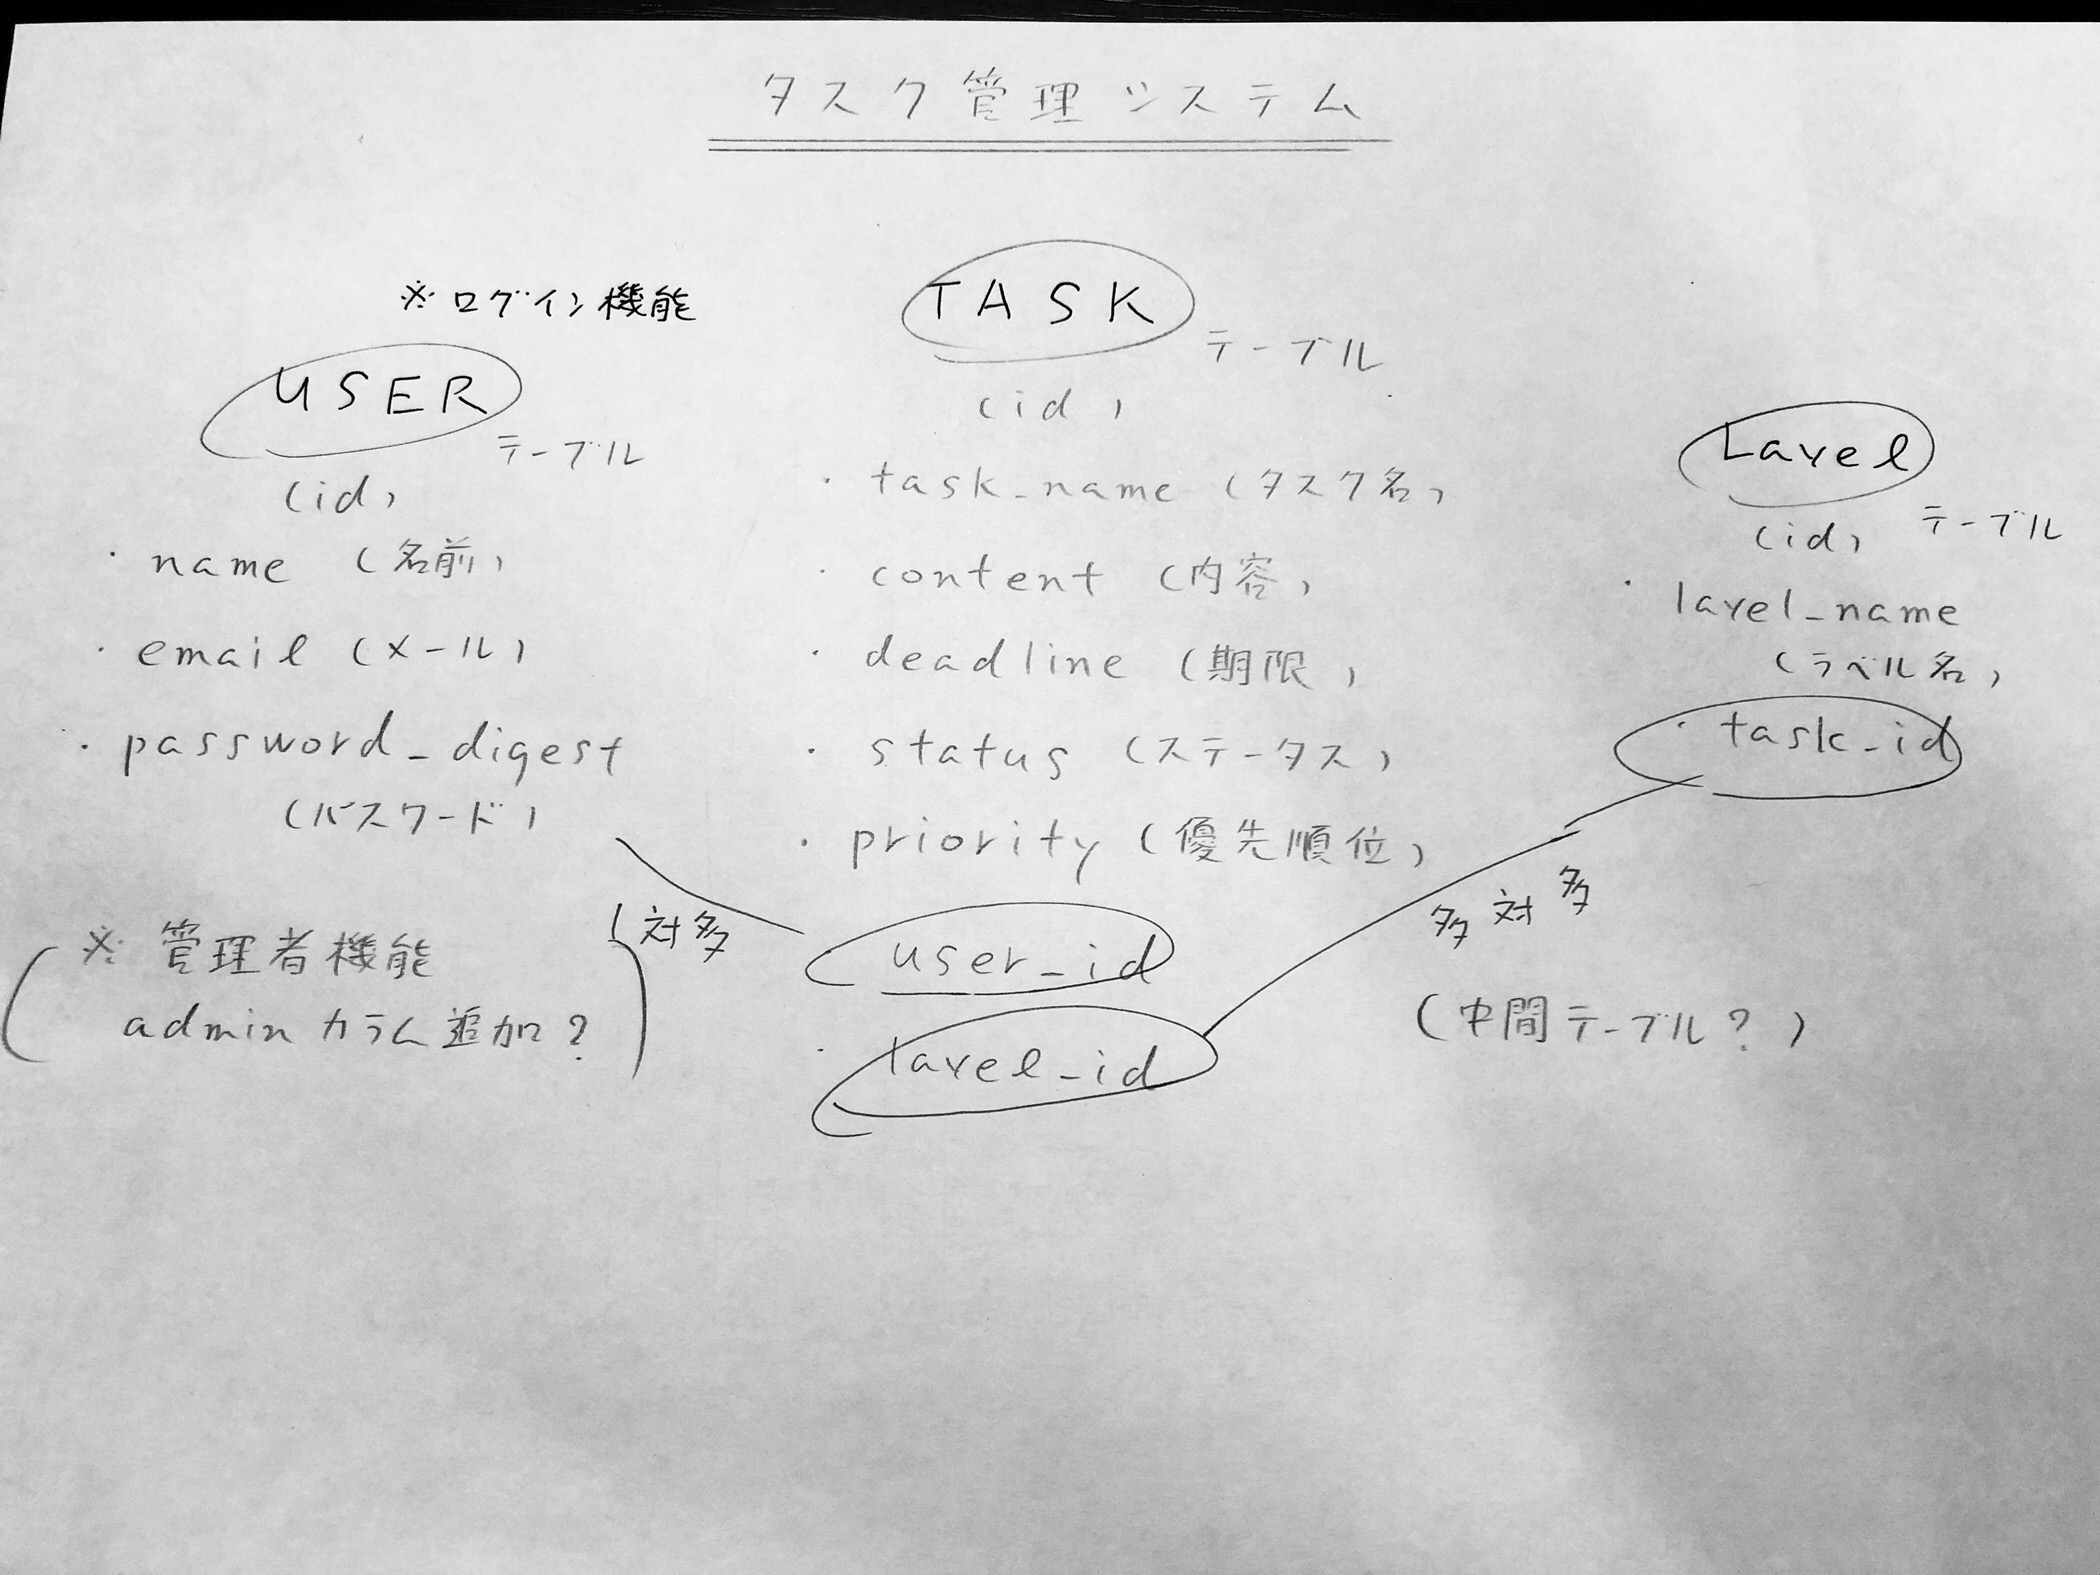 タスク管理システム
※ログイン機能
USER
テーブル
(id)
・name (名前)
・email (メール)
・password_digest
(パスワード)
(※管理者機能
adminカラム追加?)
TASK
テーブル
(id)
・task_name (タスク名)
・content (内容)
・deadline (期限)
・status (ステータス)
・priority (優先順位)
user_id
・lavel_id
1対多
Lavel
テーブル
(id)
・lavel_name
(ラベル名)
・task_id
多対多
(中間テーブル?)